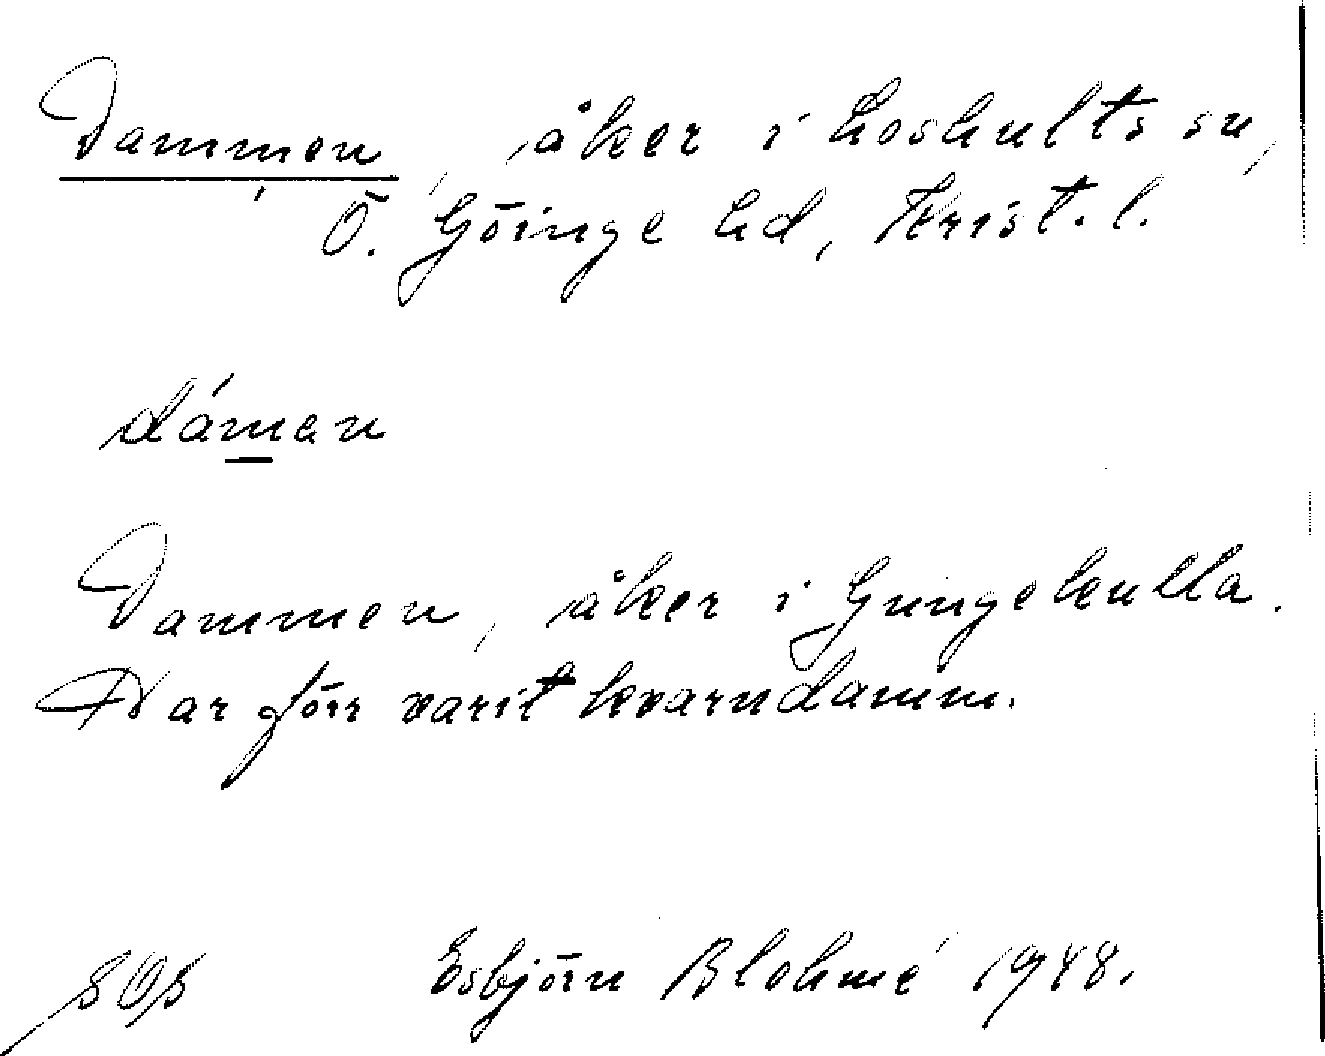 Dammen, åker i Loshults sn,
Ö. Göinge hd, Krist. l.
dámen
Dammen, åker i Gungekulla.
Har förr varit kvarndamm.
Esbjörn Blohmé 1948.